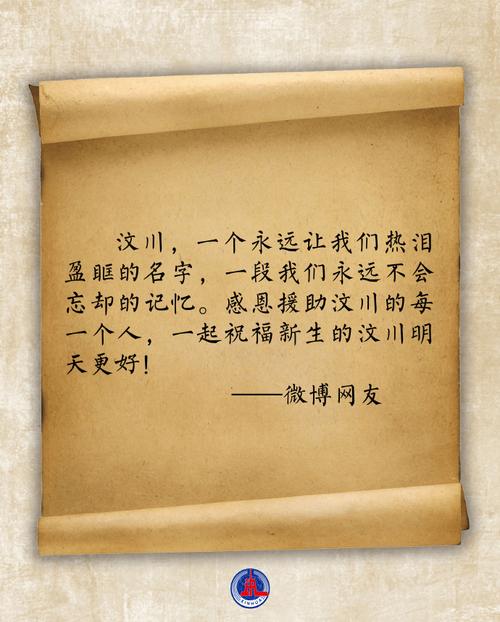 汶川，一个永远让我们热泪
盈眶的名字，一段我们永远不会
忘却的记忆。感恩援助汶川的每
一个人，一起祝福新生的汶川明
天更好！
——微博网友
XINHUA